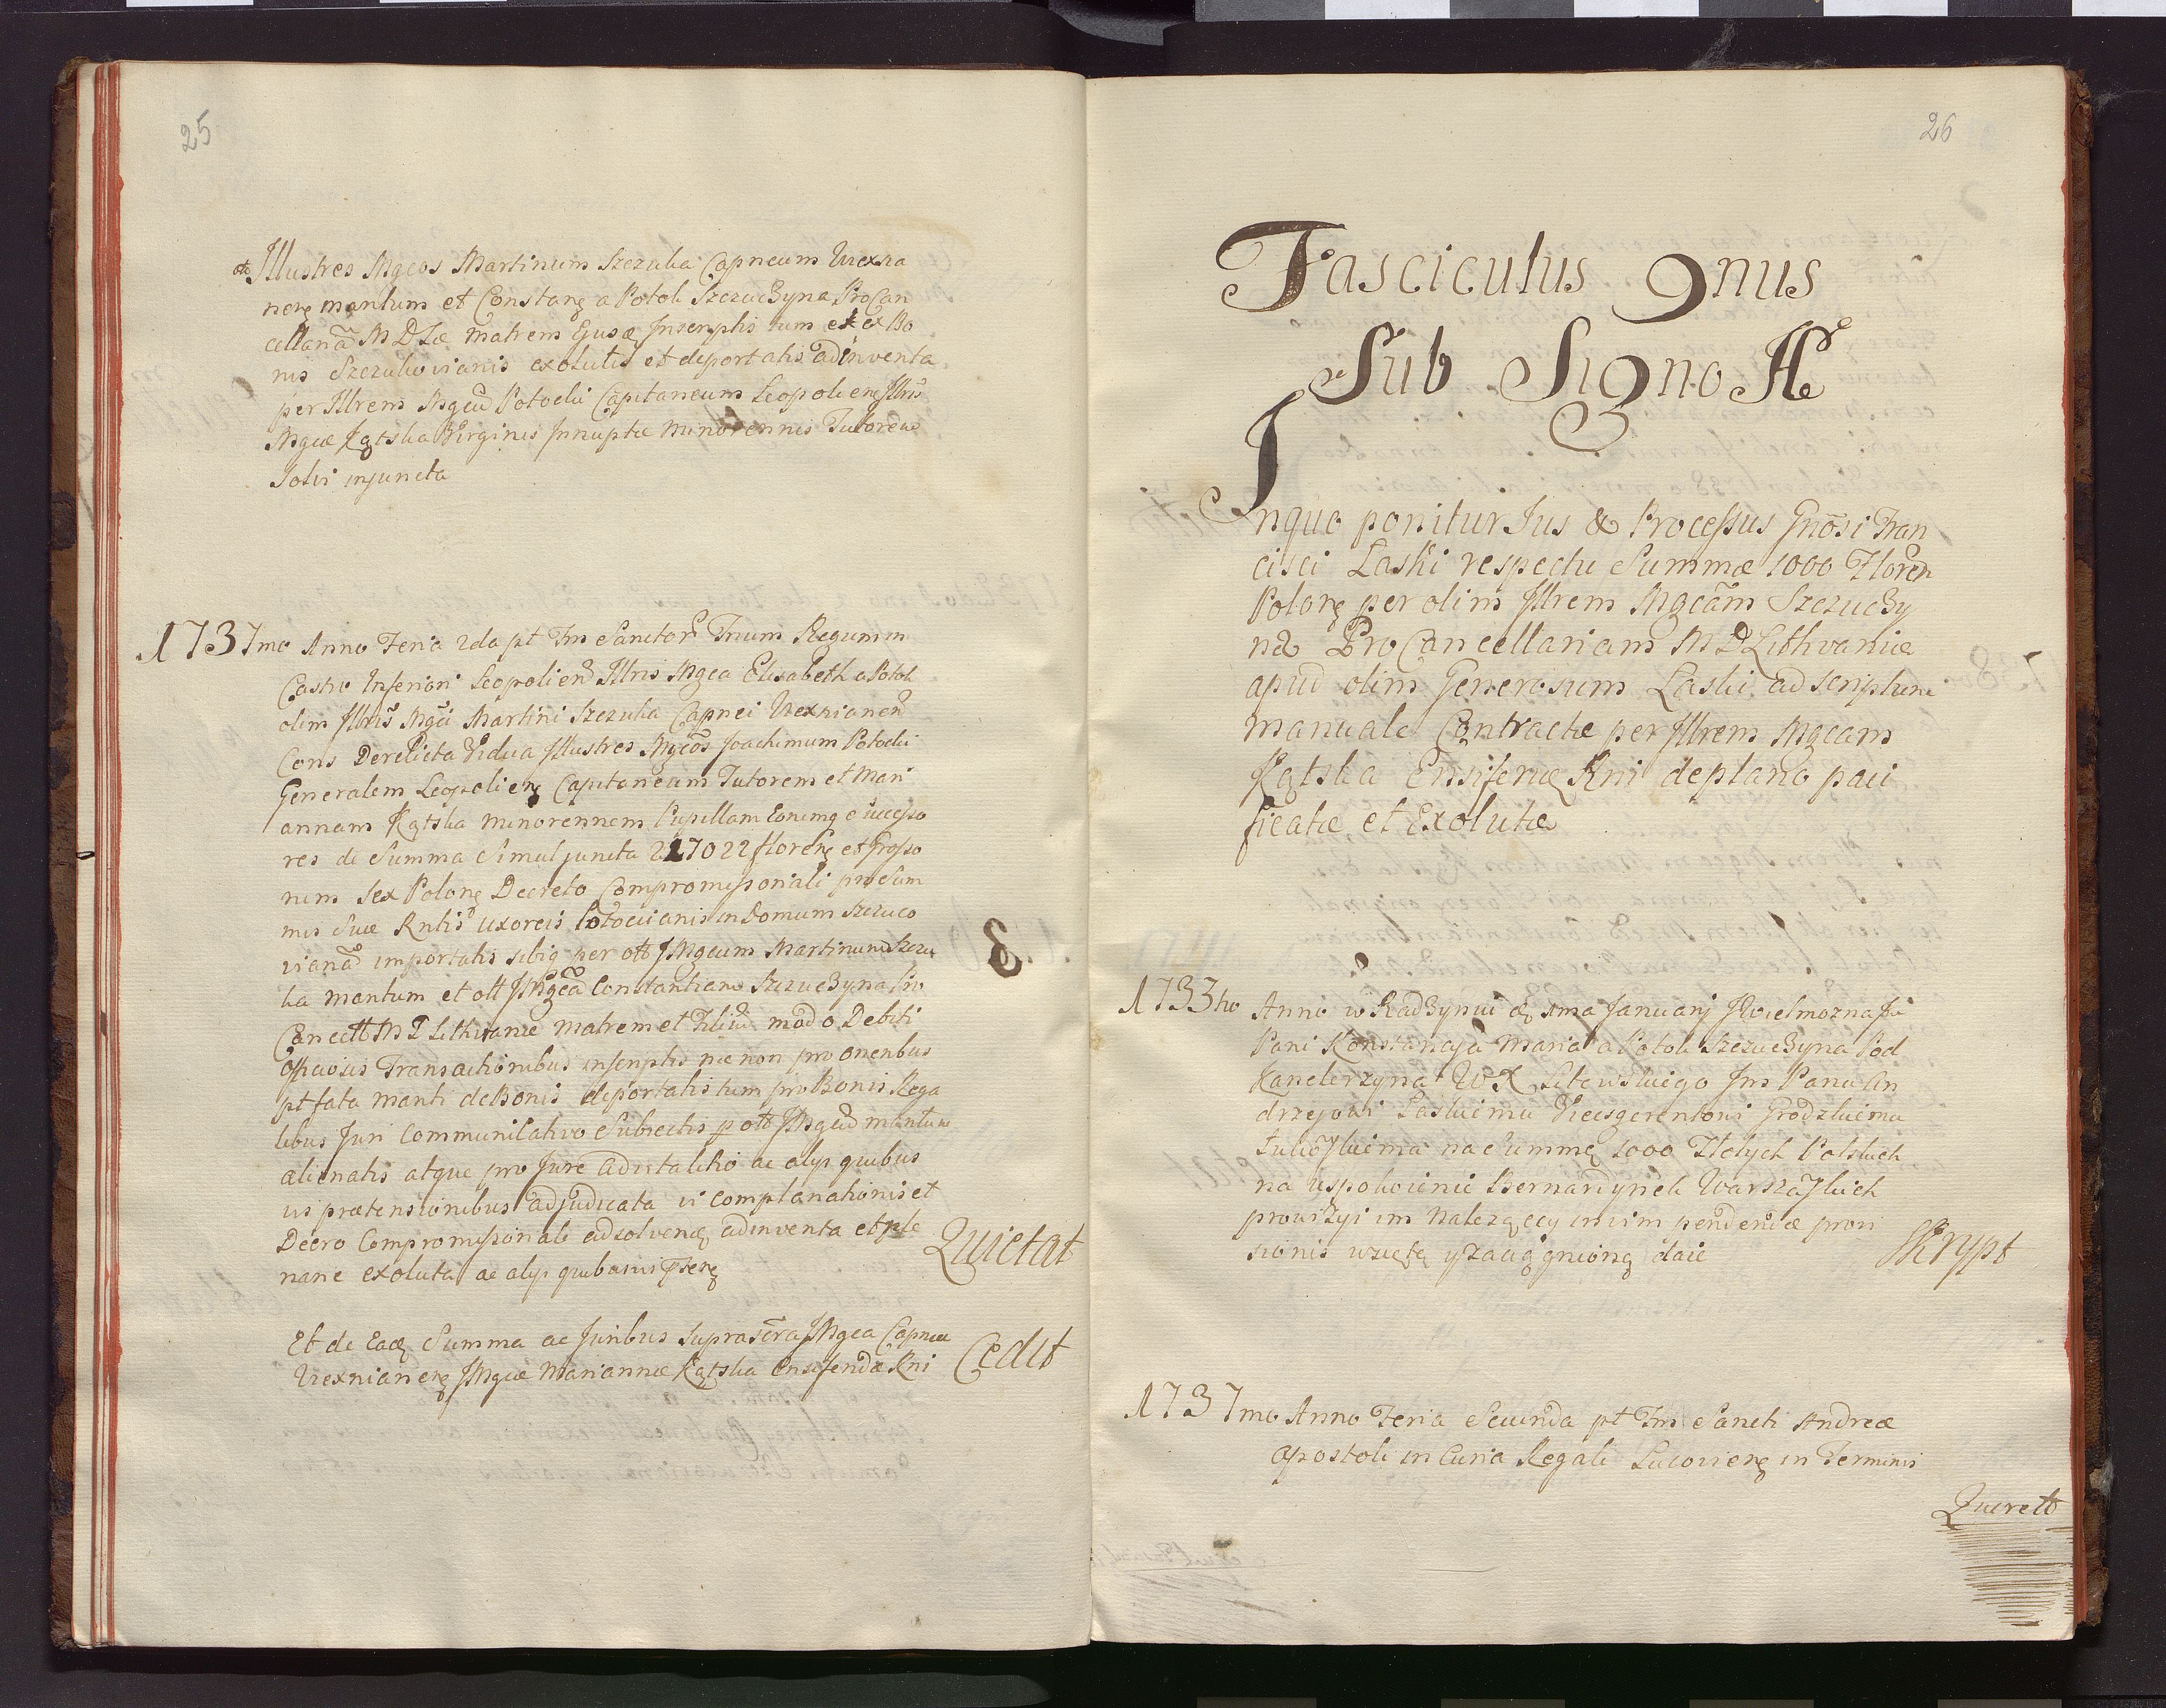 25
oto Illustres Mgcos Martinum Szczuka Capneum Wexna
nen mantum et Constane a Potok Szczuczyna ProCan
cellariā M D Læ matrem Ejusdę Inscriptis tum et ex Bo
nis Szczukovianis exolutis et deportatis adinventa
per Illrem Mgcū Potocki Capitaneum Leopolienę Illris
Mgcæ Kątska Virginis Innuptæ minorennis Tutorem
Solvi injuncta
1737mo Anno Feria 2da pt Fm Sanctor Trium Regum in
Castro Inferiori Leopolien Illris Mgca Elisabeth a Potok
olim Illris Mgci Martini Szczuka Capnei Wexnianen
Cons Derelicta Vidua Illustres Mgcos Joachimum Potocki
Generalem Leopolienę Capitaneum Tutorem et Mari
annam Kątska minorennem Pupillam Eorumq successo
res de Summa Simul juncta 227022 florenę et grosso
rum Sex Polonę Decreto Compromissoriali pro Sum
mis Suæ Rntis uxoreis Potocianis in Domum Szczuco
vianā importatis sibiq per olt JMgcum Martinum Szczu
ka mantum et olt JMgcā Constantiam Szczuczyna Pro
Cancell M D Lithvaniæ matrem et Filiū modo Debiti
officiosis Transactionibus inscriptis nec non pro onenbus
pt fata manti de Bonis deportatis tum pro Bonis Rega
libus Juri Communicativo Subiectis p olt JMgcū mantum
alienatis atque pro Jure advitalitio ac alys quibus
vis prætensionibus adjudicata vi complanationis et
Decro Compromissoriali adsolvenę adinventa et ple
narie exoluta ac alys quibusvis psenę
Quietat
&.
Et de Eadę Summa ac Juribus suprascra JMgca Capnea
Wexnianenę JMgcæ Mariannæ Kątska Ensiferidæ Rni
Cedit
26
Fasciculus 9nus
Sub Signo H
Inquo ponitur Jus & Processus Gnosi Fran
cisci Laski respectu Summæ 1000 Floren
Polonę per olim Illrem Mgcām Szczuczy
na ProCancellariam M D Lithvaniæ
apud olim Generosum Laski ad scriptum
manuale Contractæ per Illrem Mgcam
Kątska Ensiferiæ Rni deplano paci
ficatæ et Exolutæ
1733tio Anno w Radzyniu dę 1ma Januarj JWielmozna Jei
Pani Konstancya Maria a Potok Szczuczyna Pod
Kanclerzyna W X Litewskiego Jm Panu An
drzejowi Laskiemu Vicesgerentowi Grodzkiemu
Łukowskiemu na Summę 1000 Złotych Polskich
na uspokoienie Bernardynek Warszawskich
prowizyi im Nalezącey in vim pendendæ provi
sionis wziętą y zaciągnioną daie
Skrypt
1737mo Anno Feria Secunda pt Fm Sancti Andreæ
Apostoli in Curia Regali Lucovienę in Terminis
Querelo